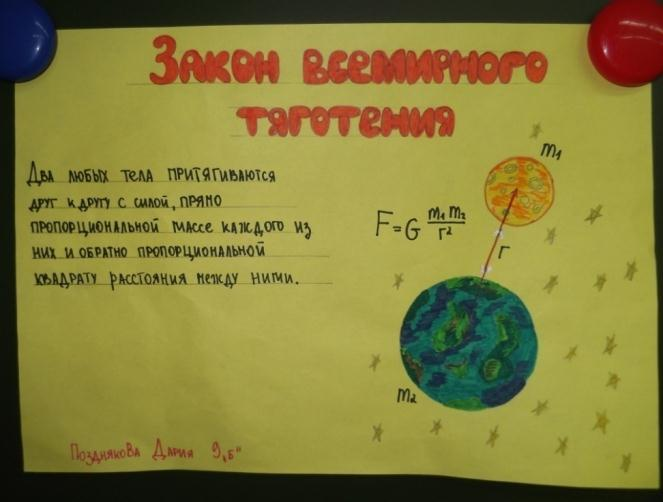 Закон всемирного
тяготения
Два любых тела притягиваются
друг к другу с силой, прямо
пропорциональной массе каждого из
них и обратно пропорциональной
квадрату расстояния между ними.
F=G m₁ m₂ / r²
m₁
r
m₂
Позднякова Дария 9 „Б“